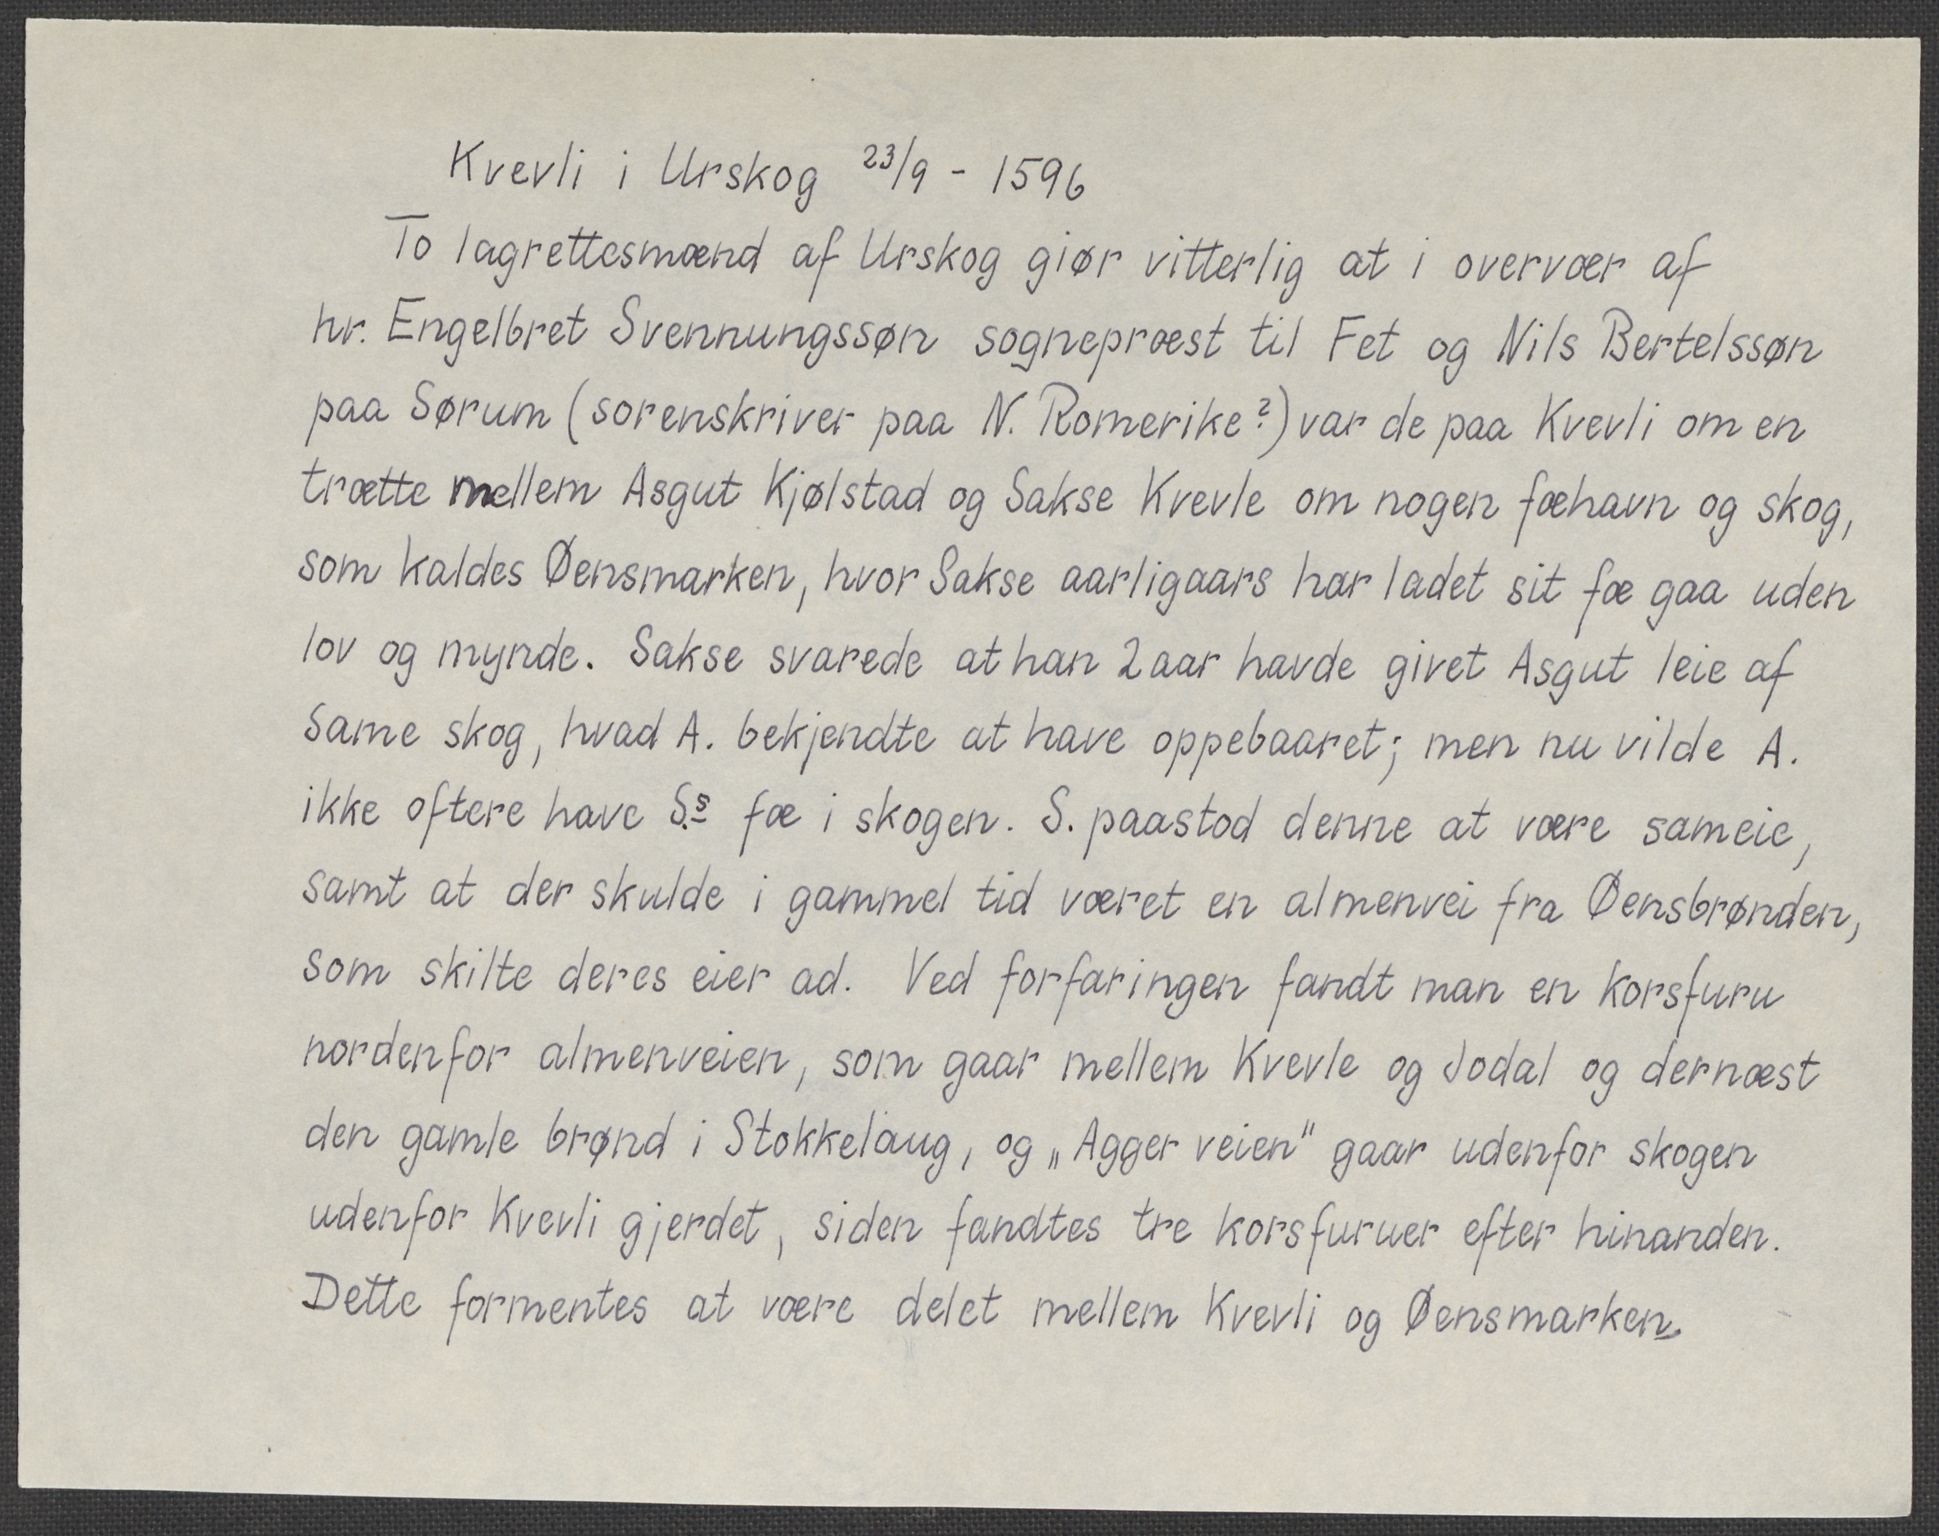 Kvevli i Urskog 23/9 - 1596
To lagrettesmænd af Urskog giør vitterlig at i overvær af
hr. Engelbret Svennungssøn sognepræst til Fet og Nils Bertelssøn
paa Sørum (sorenskriver paa N. Romerike?) var de paa Kvevli om en
trætte mellem Asgut Kjølstad og Sakse Kvevle om nogen fæhavn og skog,
som kaldes Øensmarken, hvor Sakse aarligaars har ladet sit fæ gaa uden
lov og mynde. Sakse svarede at han 2 aar havde givet Asgut leie af
same skog, hvad A. bekjendte at have oppebaaret; men nu vilde A.
ikke oftere have S.s fæ i skogen. S. paastod denne at være sameie,
samt at der skulde i gammel tid været en almenvei fra Øensbrønden,
som skilte deres eier ad. Ved forfaringen fandt man en korsfuru
nordenfor almenveien, som gaar mellem Kvevle og Jodal og dernæst
den gamle brønd i Stokkelaug, og „Agger veien" gaar udenfor skogen
udenfor Kvevli gjerdet, siden fandtes tre korsfuruer efter hinanden.
Dette formentes at være delet mellem Kvevli og Øensmarken.